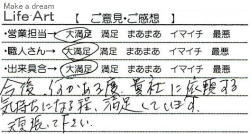 Make a dream
Life Art 【 ご意見・ご感想 】
・営業担当→ 大満足 満足 まあまあ イマイチ 最悪
・職人さん→ 大満足 満足 まあまあ イマイチ 最悪
・出来具合→ 大満足 満足 まあまあ イマイチ 最悪
今後、何かある度、貴社に依頼する
気持ちになる程、満足しています。
頑張って下さい。